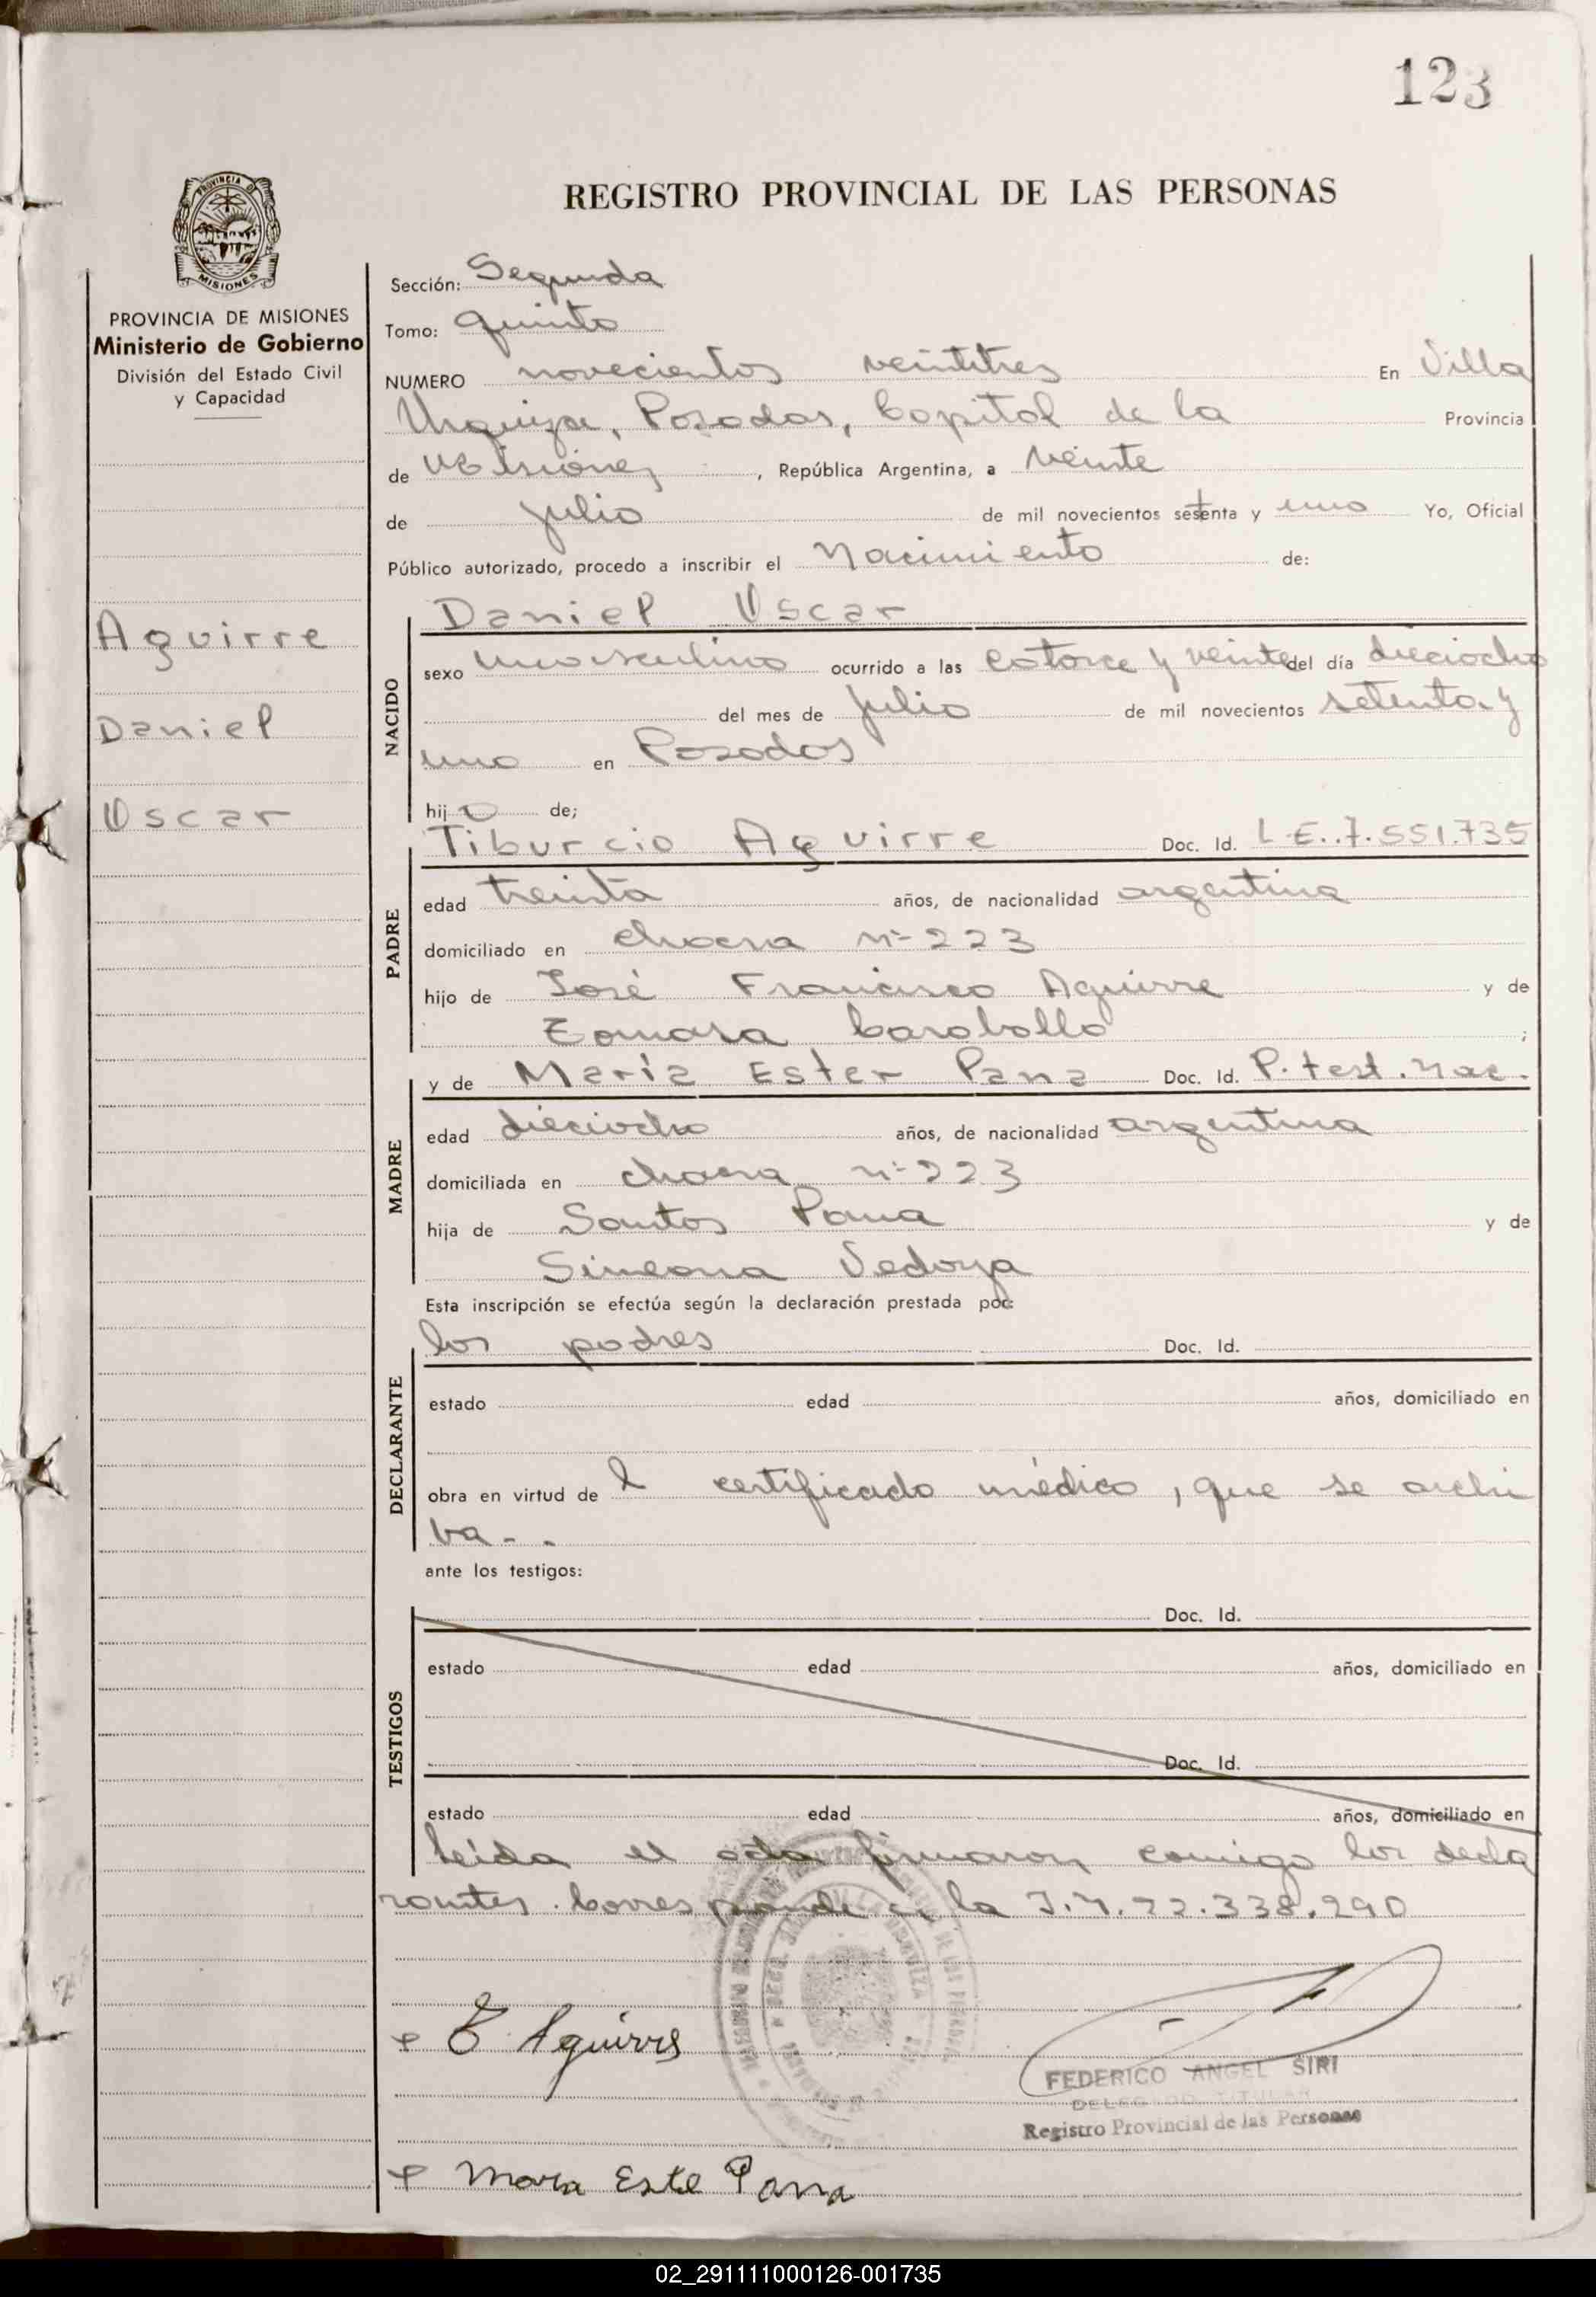 123
REGISTRO PROVINCIAL DE LAS PERSONAS
PROVINCIA DE MISIONES
Ministerio de Gobierno
División del Estado Civil
y Capacidad
Aguirre
Daniel
Oscar
Sección: Segunda
Tomo: quinto
NUMERO novecientos veintitres En Villa
Urquiza, Posadas, Capital de la Provincia
de Misiones, República Argentina, a veinte
de julio de mil novecientos setenta y uno Yo, Oficial
Público autorizado, procedo a inscribir el Nacimiento de:
NACIDO
Daniel Oscar
sexo masculino ocurrido a las catorce y veinte del día dieciocho
del mes de julio de mil novecientos setenta y
uno en Posadas
hijo de;
PADRE
Tiburcio Aguirre Doc. Id. L.E..7.551.735
edad treinta años, de nacionalidad argentina
domiciliado en chacra nº 223
hijo de José Francisco Aguirre y de
Tomasa Caraballo ;
MADRE
y de María Ester Pana Doc. Id. P. test. nac.
edad dieciocho años, de nacionalidad argentina
domiciliada en chacra nº 223
hija de Santos Pana y de
Simeona Vedoya
Esta inscripción se efectúa según la declaración prestada por:
DECLARANTE
los padres Doc. Id.
estado edad años, domiciliado en
obra en virtud de l certificado médico, que se archi
va.-
ante los testigos:
TESTIGOS
Doc. Id.
estado edad años, domiciliado en
Doc. Id.
estado edad años, domiciliado en
Leída el acta firmaron comigo los decla
rantes. Corresponde a la I.N.22.338.290
E Aguirre
FEDERICO ANGEL SIRI
DELEGADO TITULAR
Registro Provincial de las Personas
Mara Este Pana
02_291111000126-001735